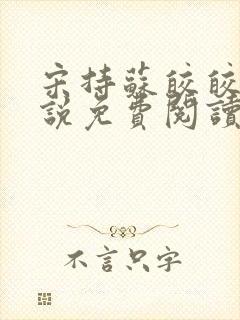 宋持蘇皎皎
說免費閱讀
不言只字